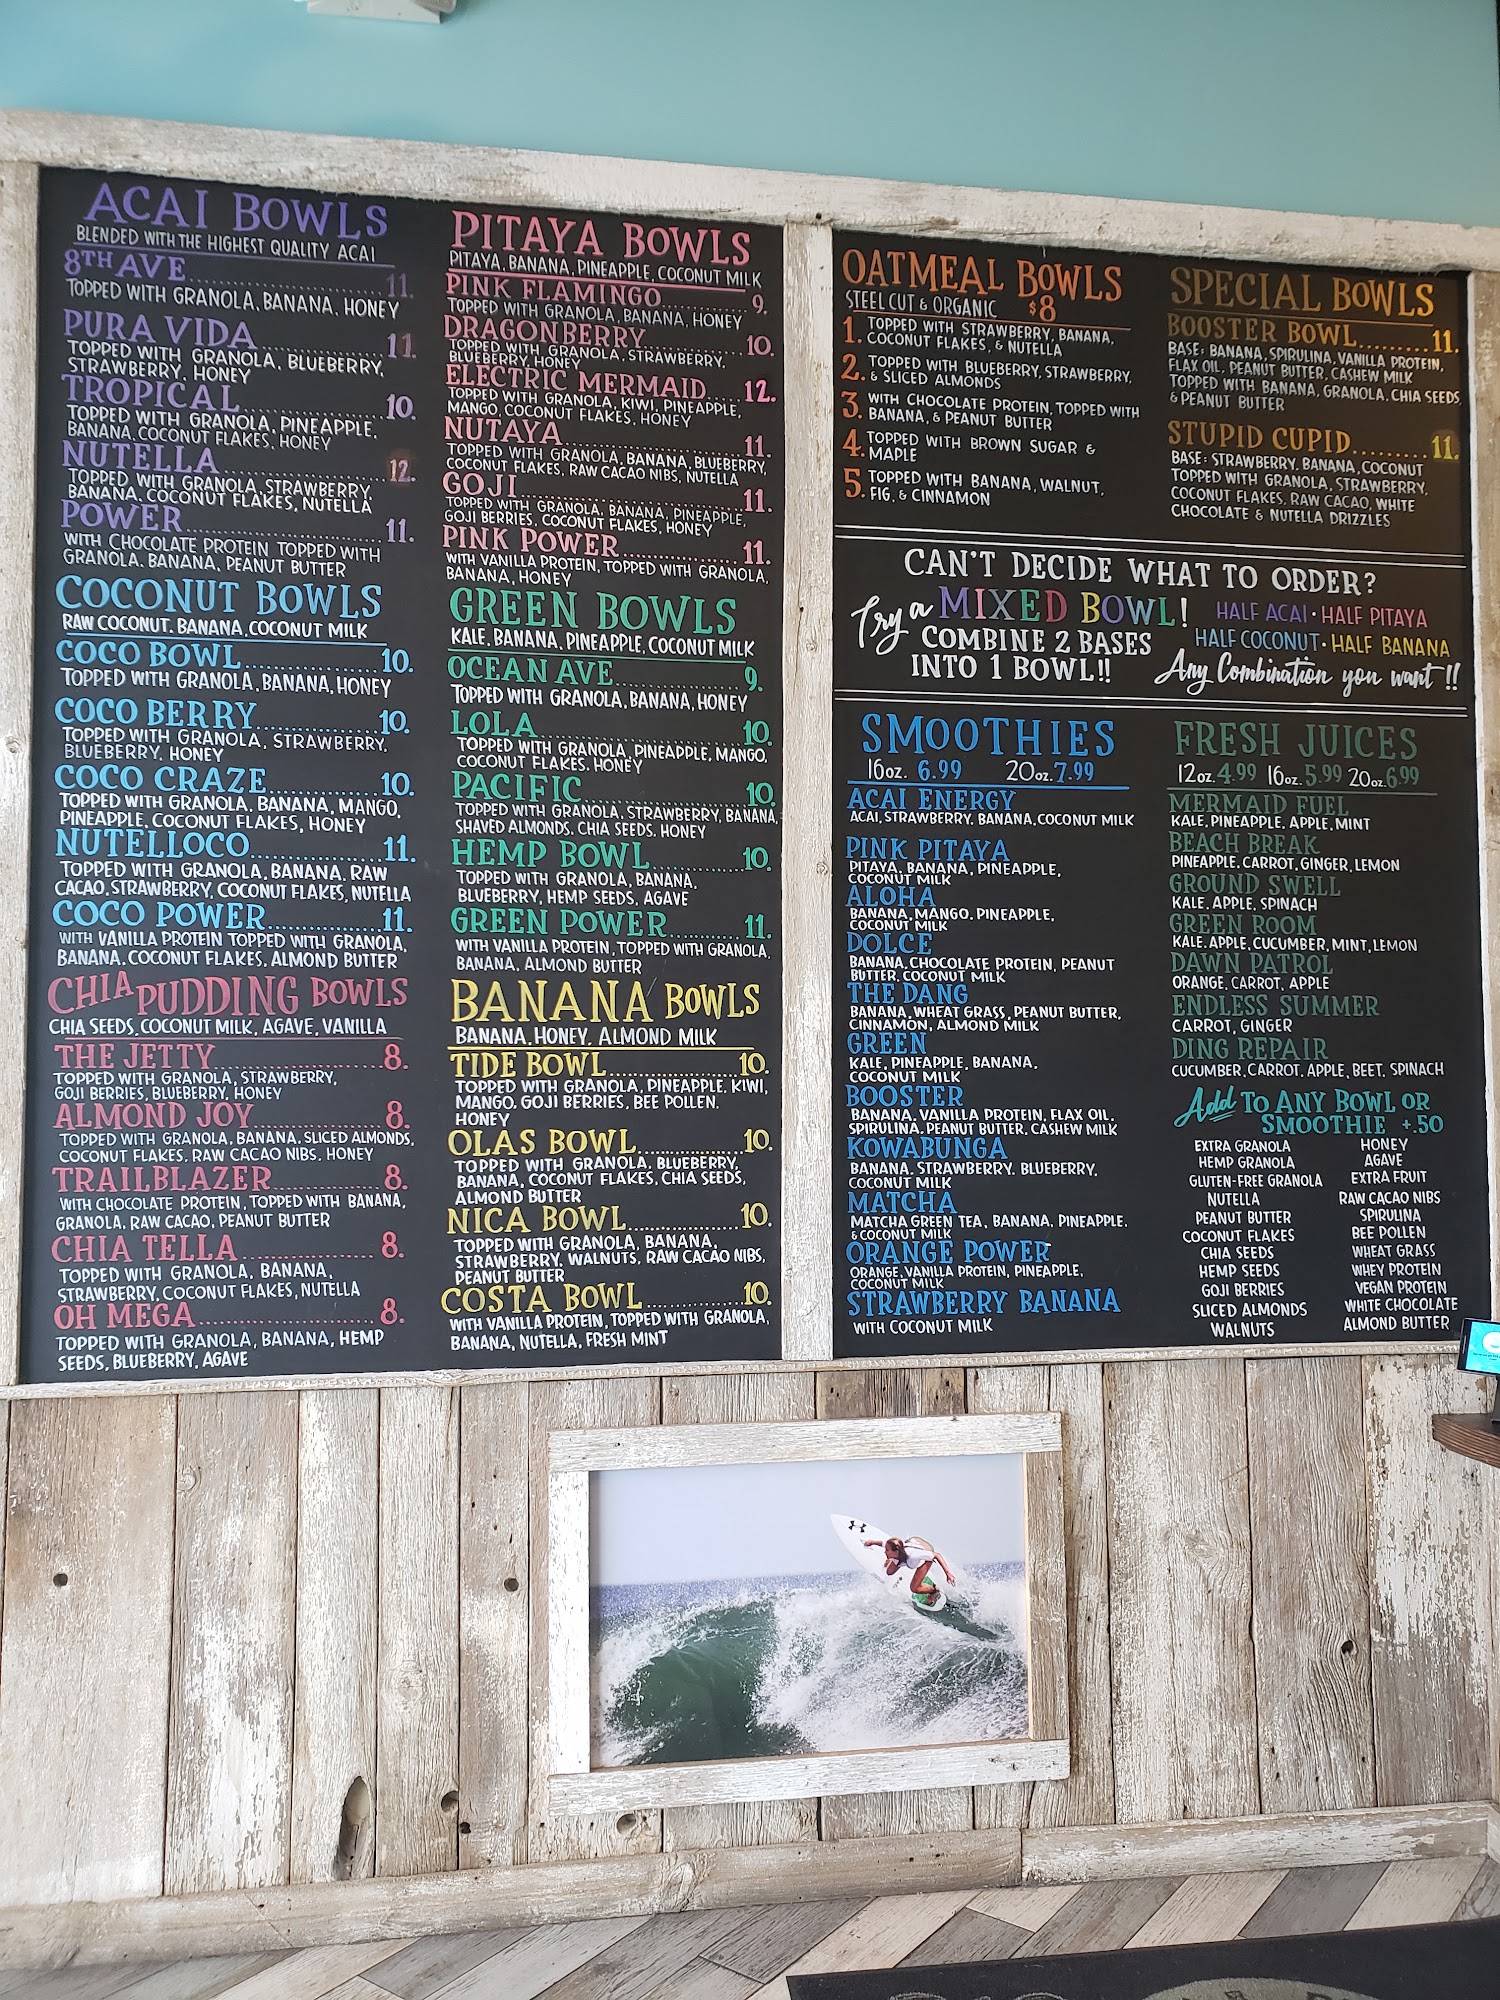 ACAI BOWLS
BLENDED WITH THE HIGHEST QUALITY ACAI
8TH AVE 11.
TOPPED WITH GRANOLA, BANANA, HONEY
PURA VIDA 11.
TOPPED WITH GRANOLA, BLUEBERRY,
STRAWBERRY, HONEY
TROPICAL 10.
TOPPED WITH GRANOLA, PINEAPPLE,
BANANA, COCONUT FLAKES, HONEY
NUTELLA 12.
TOPPED WITH GRANOLA, STRAWBERRY,
BANANA, COCONUT FLAKES, NUTELLA
POWER 11.
WITH CHOCOLATE PROTEIN TOPPED WITH
GRANOLA, BANANA, PEANUT BUTTER
COCONUT BOWLS
RAW COCONUT, BANANA, COCONUT MILK
COCO BOWL 10.
TOPPED WITH GRANOLA, BANANA, HONEY
COCO BERRY 10.
TOPPED WITH GRANOLA, STRAWBERRY,
BLUEBERRY, HONEY
COCO CRAZE 10.
TOPPED WITH GRANOLA, BANANA, MANGO,
PINEAPPLE, COCONUT FLAKES, HONEY
NUTELLOCO 11.
TOPPED WITH GRANOLA, BANANA, RAW
CACAO, STRAWBERRY, COCONUT FLAKES, NUTELLA
COCO POWER 11.
WITH VANILLA PROTEIN TOPPED WITH GRANOLA,
BANANA, COCONUT FLAKES, ALMOND BUTTER
CHIA PUDDING BOWLS
CHIA SEEDS, COCONUT MILK, AGAVE, VANILLA
THE JETTY 8.
TOPPED WITH GRANOLA, STRAWBERRY,
GOJI BERRIES, BLUEBERRY, HONEY
ALMOND JOY 8.
TOPPED WITH GRANOLA, BANANA, SLICED ALMONDS,
COCONUT FLAKES, RAW CACAO NIBS, HONEY
TRAILBLAZER 8.
WITH CHOCOLATE PROTEIN, TOPPED WITH BANANA,
GRANOLA, RAW CACAO, PEANUT BUTTER
CHIA TELLA 8.
TOPPED WITH GRANOLA, BANANA,
STRAWBERRY, COCONUT FLAKES, NUTELLA
OH MEGA 8.
TOPPED WITH GRANOLA, BANANA, HEMP
SEEDS, BLUEBERRY, AGAVE
PITAYA BOWLS
PITAYA, BANANA, PINEAPPLE, COCONUT MILK
PINK FLAMINGO 9.
TOPPED WITH GRANOLA, BANANA, HONEY
DRAGONBERRY 10.
TOPPED WITH GRANOLA, STRAWBERRY,
BLUEBERRY, HONEY
ELECTRIC MERMAID 12.
TOPPED WITH GRANOLA, KIWI, PINEAPPLE,
MANGO, COCONUT FLAKES, HONEY
NUTAYA 11.
TOPPED WITH GRANOLA, BANANA, BLUEBERRY,
COCONUT FLAKES, RAW CACAO NIBS, NUTELLA
GOJI 11.
TOPPED WITH GRANOLA, BANANA, PINEAPPLE,
GOJI BERRIES, COCONUT FLAKES, HONEY
PINK POWER 11.
WITH VANILLA PROTEIN, TOPPED WITH GRANOLA,
BANANA, HONEY
GREEN BOWLS
KALE, BANANA, PINEAPPLE, COCONUT MILK
OCEAN AVE 9.
TOPPED WITH GRANOLA, BANANA, HONEY
LOLA 10.
TOPPED WITH GRANOLA, PINEAPPLE, MANGO,
COCONUT FLAKES, HONEY
PACIFIC 10.
TOPPED WITH GRANOLA, STRAWBERRY, BANANA,
SHAVED ALMONDS, CHIA SEEDS, HONEY
HEMP BOWL 10.
TOPPED WITH GRANOLA, BANANA,
BLUEBERRY, HEMP SEEDS, AGAVE
GREEN POWER 11.
WITH VANILLA PROTEIN, TOPPED WITH GRANOLA,
BANANA, ALMOND BUTTER
BANANA BOWLS
BANANA, HONEY, ALMOND MILK
TIDE BOWL 10.
TOPPED WITH GRANOLA, PINEAPPLE, KIWI,
MANGO, GOJI BERRIES, BEE POLLEN,
HONEY
OLAS BOWL 10.
TOPPED WITH GRANOLA, BLUEBERRY,
BANANA, COCONUT FLAKES, CHIA SEEDS,
ALMOND BUTTER
NICA BOWL 10.
TOPPED WITH GRANOLA, BANANA,
STRAWBERRY, WALNUTS, RAW CACAO NIBS,
PEANUT BUTTER
COSTA BOWL 10.
WITH VANILLA PROTEIN, TOPPED WITH GRANOLA,
BANANA, NUTELLA, FRESH MINT
OATMEAL BOWLS
STEEL CUT & ORGANIC $8
1. TOPPED WITH STRAWBERRY, BANANA,
COCONUT FLAKES, & NUTELLA
2. TOPPED WITH BLUEBERRY, STRAWBERRY,
& SLICED ALMONDS
3. WITH CHOCOLATE PROTEIN, TOPPED WITH
BANANA, & PEANUT BUTTER
4. TOPPED WITH BROWN SUGAR &
MAPLE
5. TOPPED WITH BANANA, WALNUT,
FIG, & CINNAMON
SPECIAL BOWLS
BOOSTER BOWL 11.
BASE: BANANA, SPIRULINA, VANILLA PROTEIN,
FLAX OIL, PEANUT BUTTER, CASHEW MILK
TOPPED WITH BANANA, GRANOLA, CHIA SEEDS,
& PEANUT BUTTER
STUPID CUPID 11.
BASE: STRAWBERRY, BANANA, COCONUT
TOPPED WITH GRANOLA, STRAWBERRY,
COCONUT FLAKES, RAW CACAO, WHITE
CHOCOLATE & NUTELLA DRIZZLES
CAN'T DECIDE WHAT TO ORDER?
Try a MIXED BOWL!
COMBINE 2 BASES
INTO 1 BOWL!!
HALF ACAI · HALF PITAYA
HALF COCONUT · HALF BANANA
Any Combination you want!!
SMOOTHIES
16oz. 6.99 20oz. 7.99
ACAI ENERGY
ACAI, STRAWBERRY, BANANA, COCONUT MILK
PINK PITAYA
PITAYA, BANANA, PINEAPPLE,
COCONUT MILK
ALOHA
BANANA, MANGO, PINEAPPLE,
COCONUT MILK
DOLCE
BANANA, CHOCOLATE PROTEIN, PEANUT
BUTTER, COCONUT MILK
THE DANG
BANANA, WHEAT GRASS, PEANUT BUTTER,
CINNAMON, ALMOND MILK
GREEN
KALE, PINEAPPLE, BANANA,
COCONUT MILK
BOOSTER
BANANA, VANILLA PROTEIN, FLAX OIL,
SPIRULINA, PEANUT BUTTER, CASHEW MILK
KOWABUNGA
BANANA, STRAWBERRY, BLUEBERRY,
COCONUT MILK
MATCHA
MATCHA GREEN TEA, BANANA, PINEAPPLE,
& COCONUT MILK
ORANGE POWER
ORANGE, VANILLA PROTEIN, PINEAPPLE,
COCONUT MILK
STRAWBERRY BANANA
WITH COCONUT MILK
FRESH JUICES
12oz. 4.99 16oz. 5.99 20oz. 6.99
MERMAID FUEL
KALE, PINEAPPLE, APPLE, MINT
BEACH BREAK
PINEAPPLE, CARROT, GINGER, LEMON
GROUND SWELL
KALE, APPLE, SPINACH
GREEN ROOM
KALE, APPLE, CUCUMBER, MINT, LEMON
DAWN PATROL
ORANGE, CARROT, APPLE
ENDLESS SUMMER
CARROT, GINGER
DING REPAIR
CUCUMBER, CARROT, APPLE, BEET, SPINACH
Add TO ANY BOWL OR
SMOOTHIE +.50
EXTRA GRANOLA
HEMP GRANOLA
GLUTEN-FREE GRANOLA
NUTELLA
PEANUT BUTTER
COCONUT FLAKES
CHIA SEEDS
HEMP SEEDS
GOJI BERRIES
SLICED ALMONDS
WALNUTS
HONEY
AGAVE
EXTRA FRUIT
RAW CACAO NIBS
SPIRULINA
BEE POLLEN
WHEAT GRASS
WHEY PROTEIN
VEGAN PROTEIN
WHITE CHOCOLATE
ALMOND BUTTER